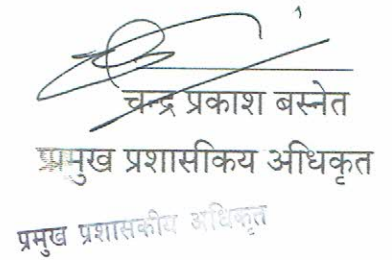 चन्द्र प्रकाश बस्नेत
प्रमुख प्रशासकिय अधिकृत
प्रमुख प्रशासकीय अधिकृत